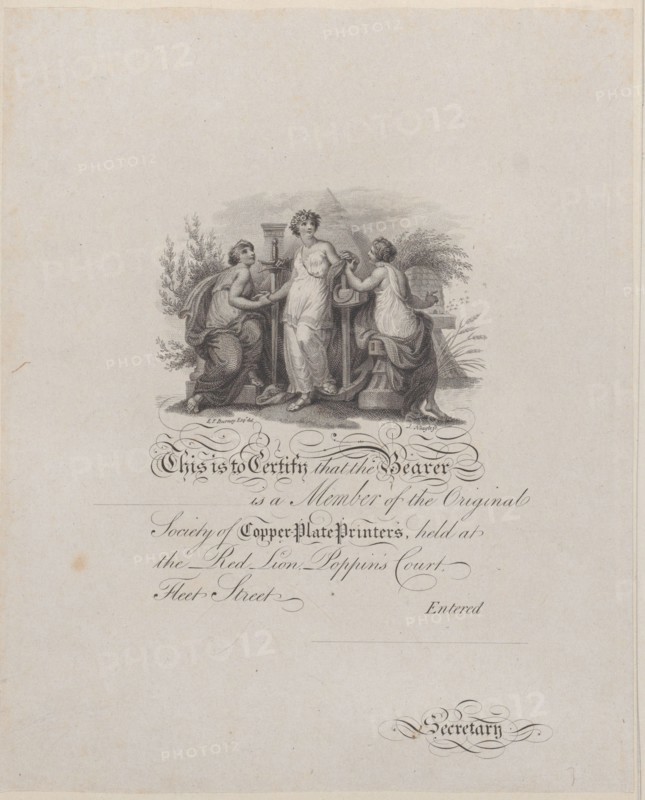 E.F. Burney Esq. del.
This is to Certify that the Bearer
is a Member of the Original
Society of Copper-Plate Printers, held at
the Red Lion, Poppins Court,
Fleet Street
Entered
Secretary
PHOTO12